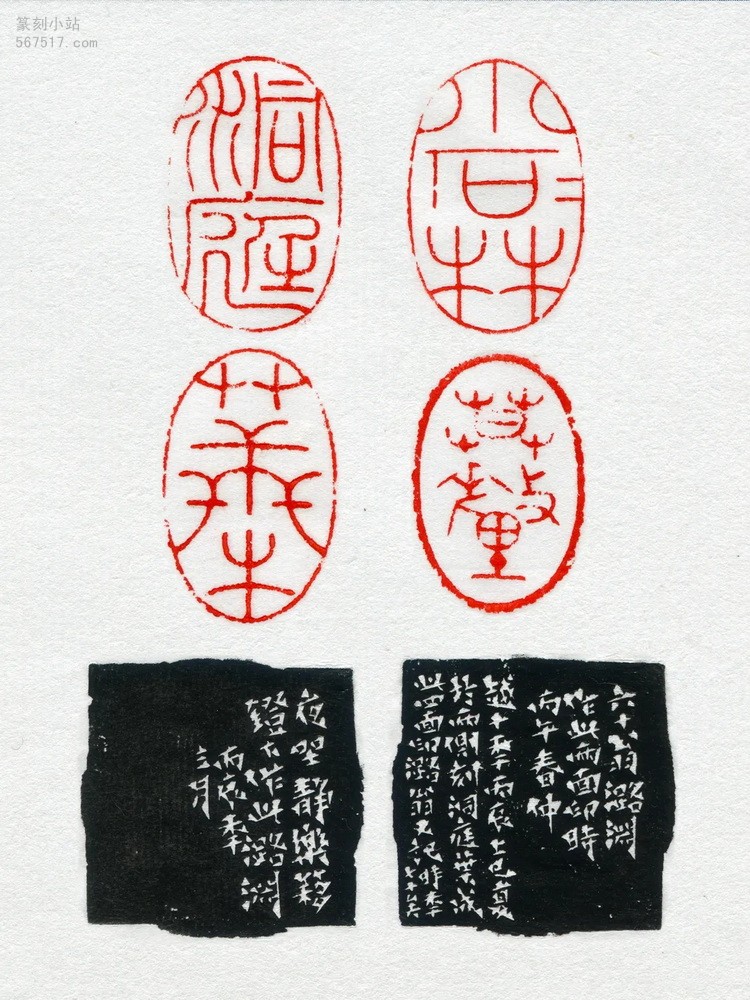 篆刻小站
567517.com
洞庭
葉
六十翁潞淵
作此兩面印時
丙午春仲
越十年丙辰上巳復
於兩側刻洞庭葉成
此四面印潞翁又記時年七十
夜坐靜樂簃
鐙下作此潞淵
丙辰年
三月